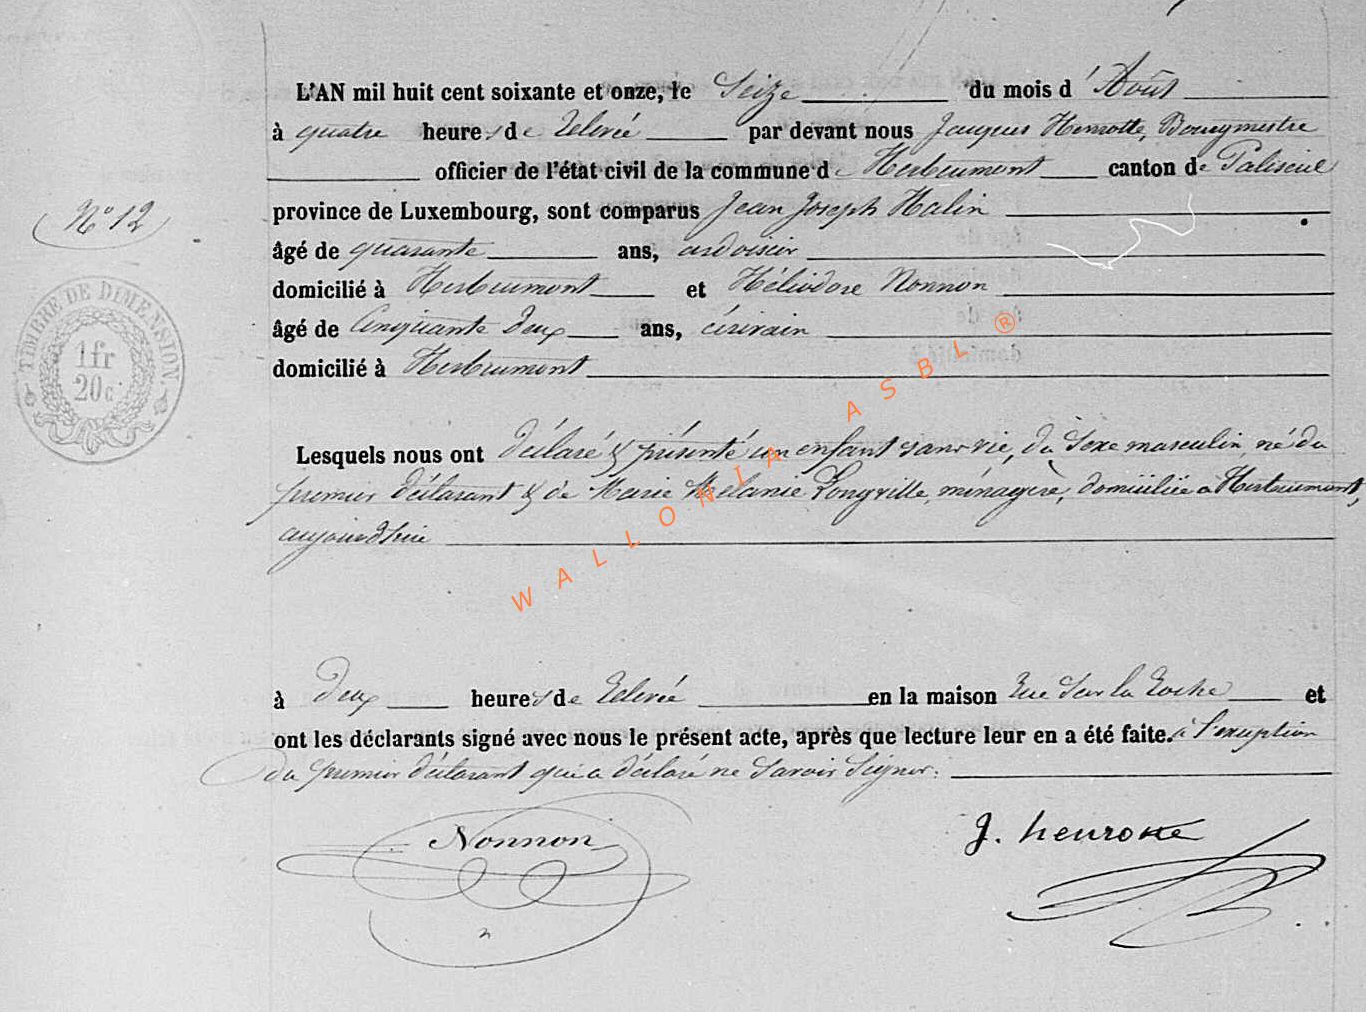 L'AN mil huit cent soixante et onze, le Seize du mois d'Août
à quatre heures de relevé par devant nous Jacques Henrotte, Bourgmestre
officier de l'état civil de la commune de Herbeumont canton de Paliseul
N° 12
province de Luxembourg, sont comparus Jean Joseph Halin
âgé de quarante ans, ardoisier
domicilié à Herbeumont et Héliodore Nonnon
TIMBRE DE DIMENSION
1 fr
20 c
âgé de Cinquante deux ans, écrivain
domicilié à Herbeumont
Lesquels nous ont déclaré & présenté un enfant sans vie, du Sexe masculin, né du
premier déclarant & de Marie Mélanie Longville, ménagère, domiciliée à Herbeumont,
aujourd'hui
à deux heures de relevée en la maison rue Sur la Roche et
ont les déclarants signé avec nous le présent acte, après que lecture leur en a été faite. à l'exception
du premier déclarant qui a déclaré ne savoir signer.
Nonnon J. henrotte
WALLONIA ASBL ®